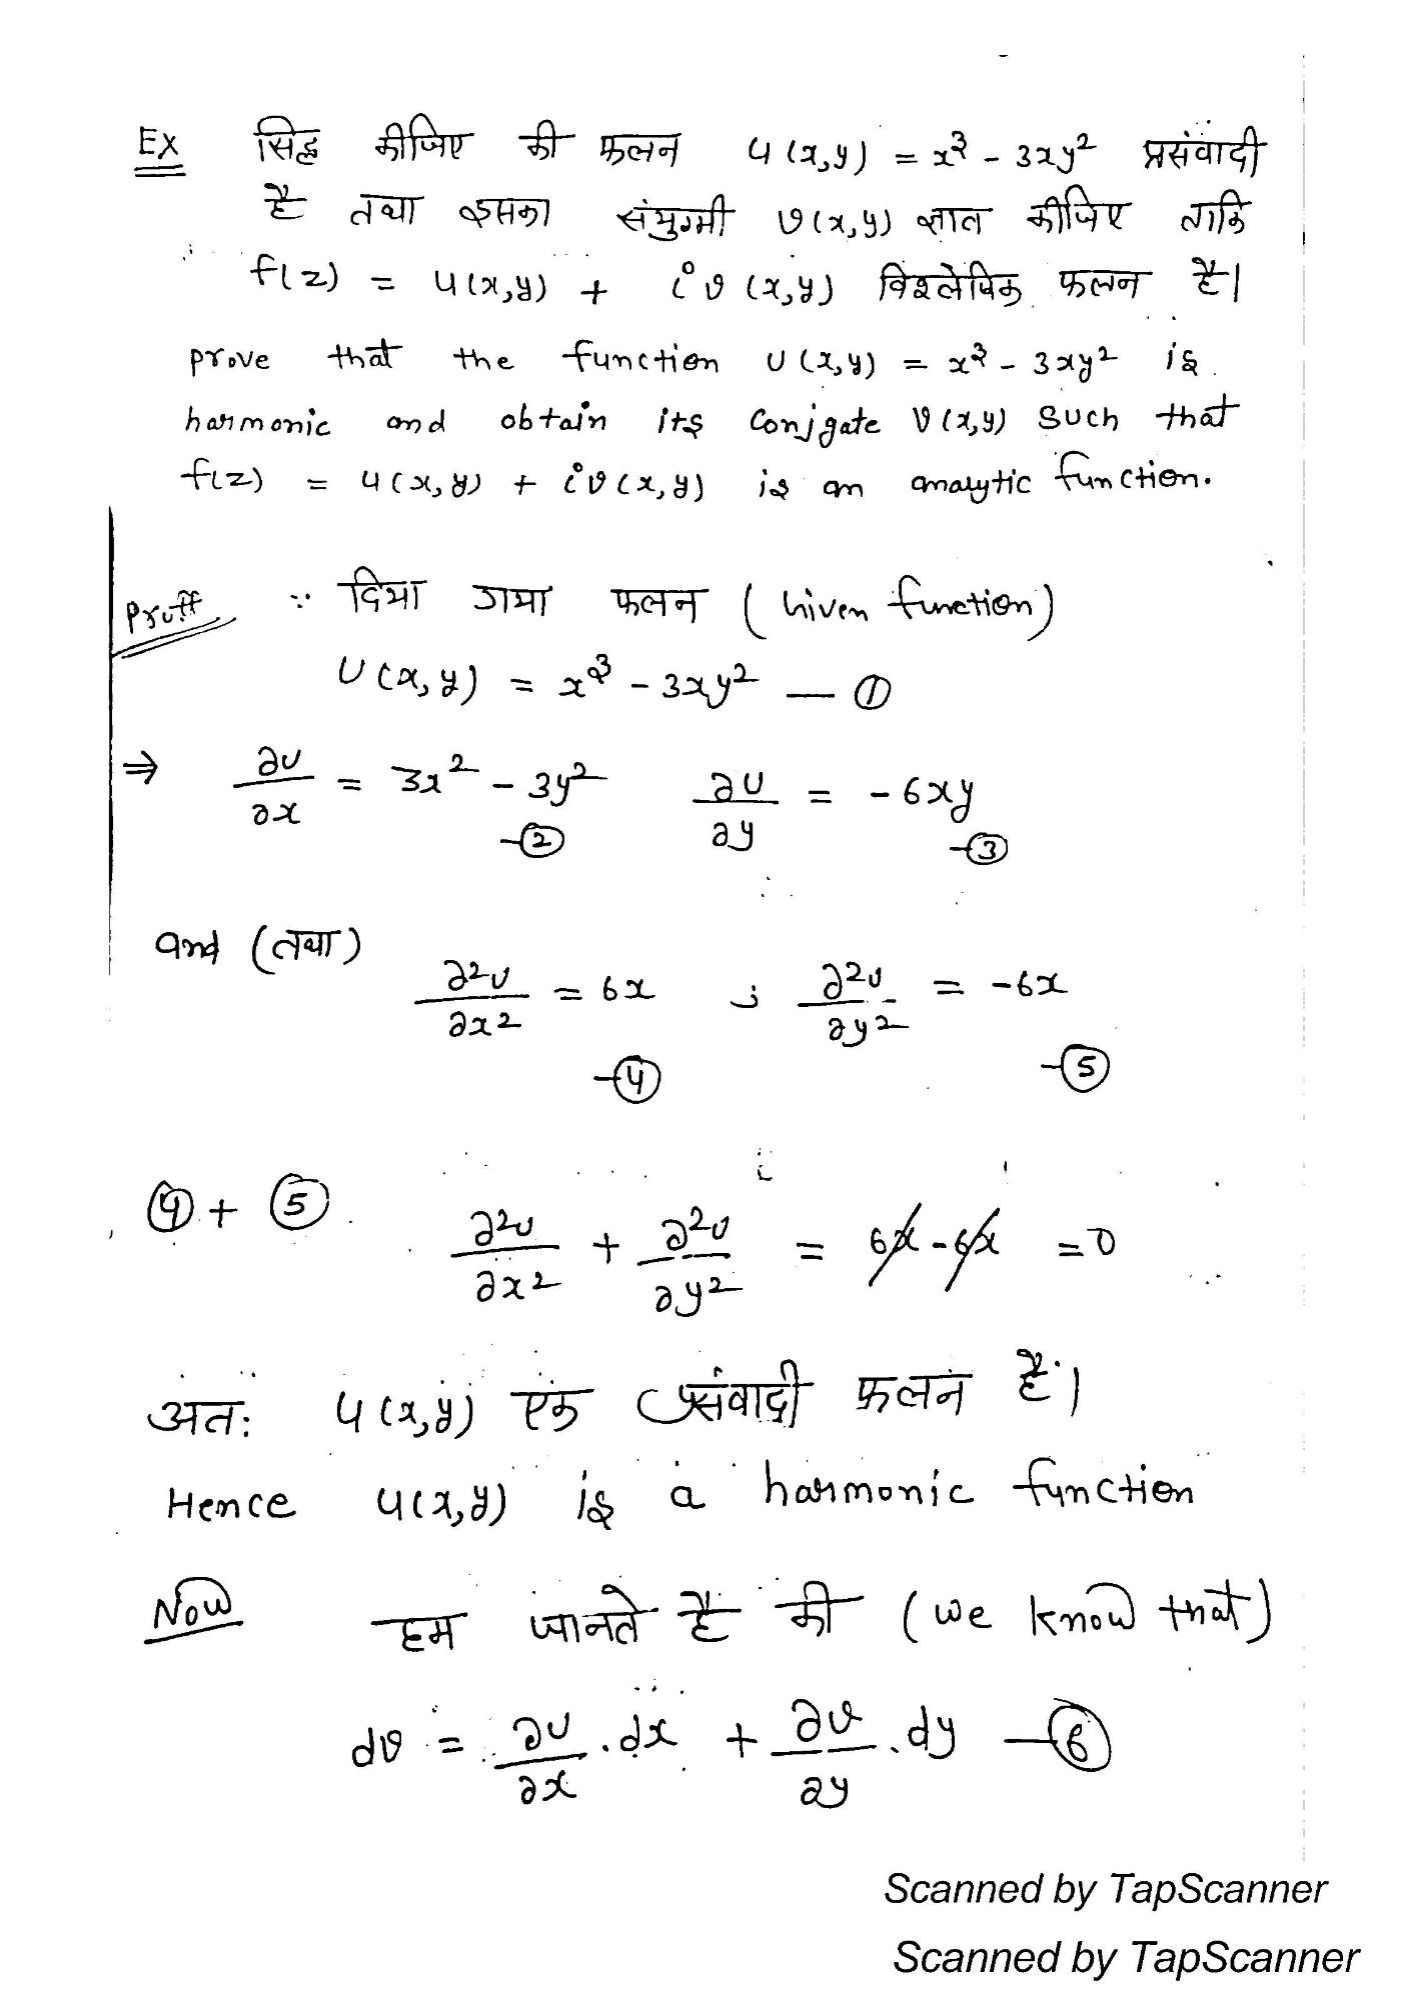 Ex सिद्ध कीजिए की फलन u(x,y) = x³ - 3xy² प्रसंवादी
है तथा इसका संयुग्मी v(x,y) ज्ञात कीजिए ताकि
f(z) = u(x,y) + iv(x,y) विश्लेषिक फलन है।
prove that the function u(x,y) = x³ - 3xy² is
harmonic and obtain its Conjgate v(x,y) Such that
f(z) = u(x,y) + iv(x,y) is an analytic function.
Proff ∵ दिया गया फलन (Given function)
U(x,y) = x³ - 3xy² — ①
⇒ ∂U/∂x = 3x² - 3y² -② ∂U/∂y = -6xy -③
and (तथा) ∂²U/∂x² = 6x -④ ; ∂²U/∂y² = -6x -⑤
④ + ⑤ ∂²U/∂x² + ∂²U/∂y² = 6x - 6x = 0
अतः u(x,y) एक प्रसंवादी फलन है।
Hence u(x,y) is a harmonic function
Now हम जानते है की (we know that)
dv = ∂v/∂x . dx + ∂v/∂y . dy — ⑥
Scanned by TapScanner
Scanned by TapScanner